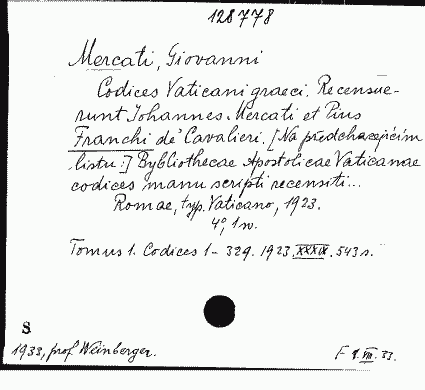 128778
Mercati, Giovanni
Codices Vaticani graeci. Recensue-
runt Iohannes Mercati et Pius
Franchi de' Cavalieri. [Na předcházejícím
listu:] Bybliothecae Apostolicae Vaticanae
codices manu scripti recensiti...
Romae, typ. Vaticano, 1923.
4°, 1 w.
Tomus 1. Codices 1-329. 1923. XXXIX. 543 s.
S
1933, prof. Weinberger.
F 1. VII. 33.